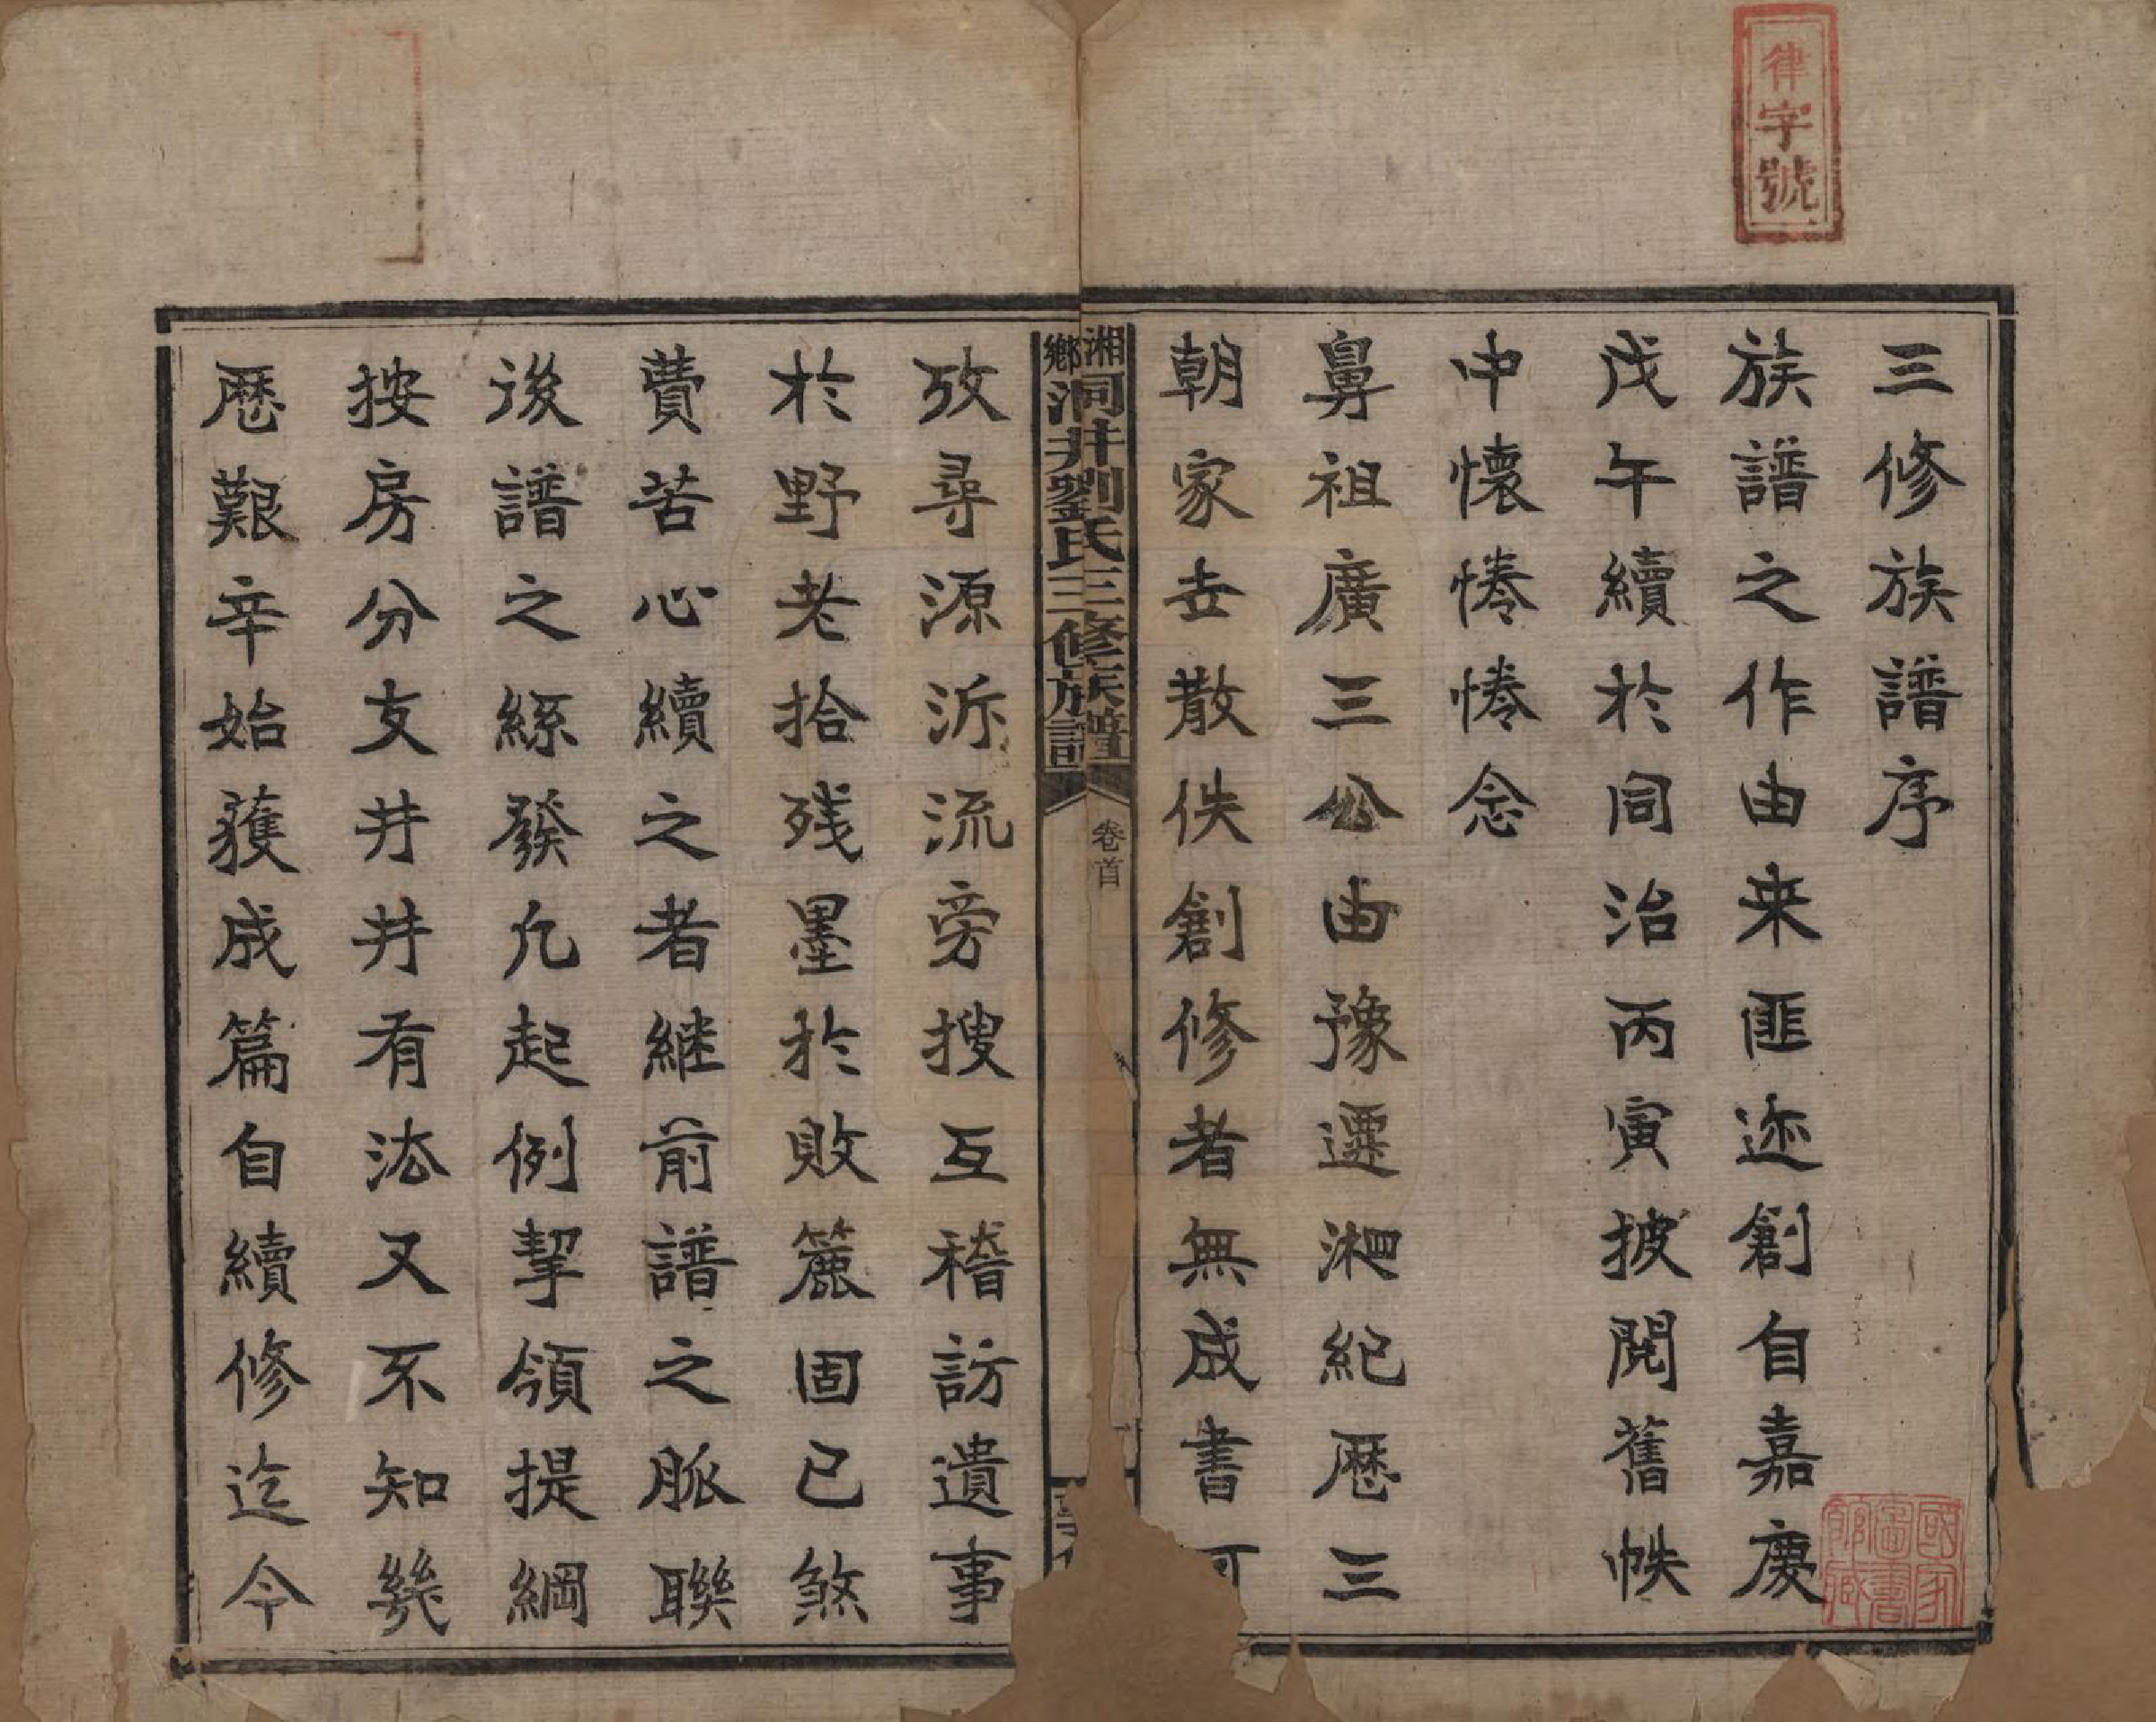 律字號
三修族譜序
族譜之作由来匪迩創自嘉慶
戊午續於同治丙寅披閱舊帙
中懷惓惓念
鼻祖廣三公由豫遷湘紀歷三
朝家世散佚創修者無成書可
湘鄉洞井劉氏三修族譜
卷首
攷尋源泝流旁搜互稽訪遺事
於野老拾残墨於敗簏固已煞
費苦心續之者継前譜之脈聯
後譜之緜發凡起例挈領提綱
按房分支井井有法又不知幾
歷艱辛始獲成篇自續修迄今
國家圖書館藏